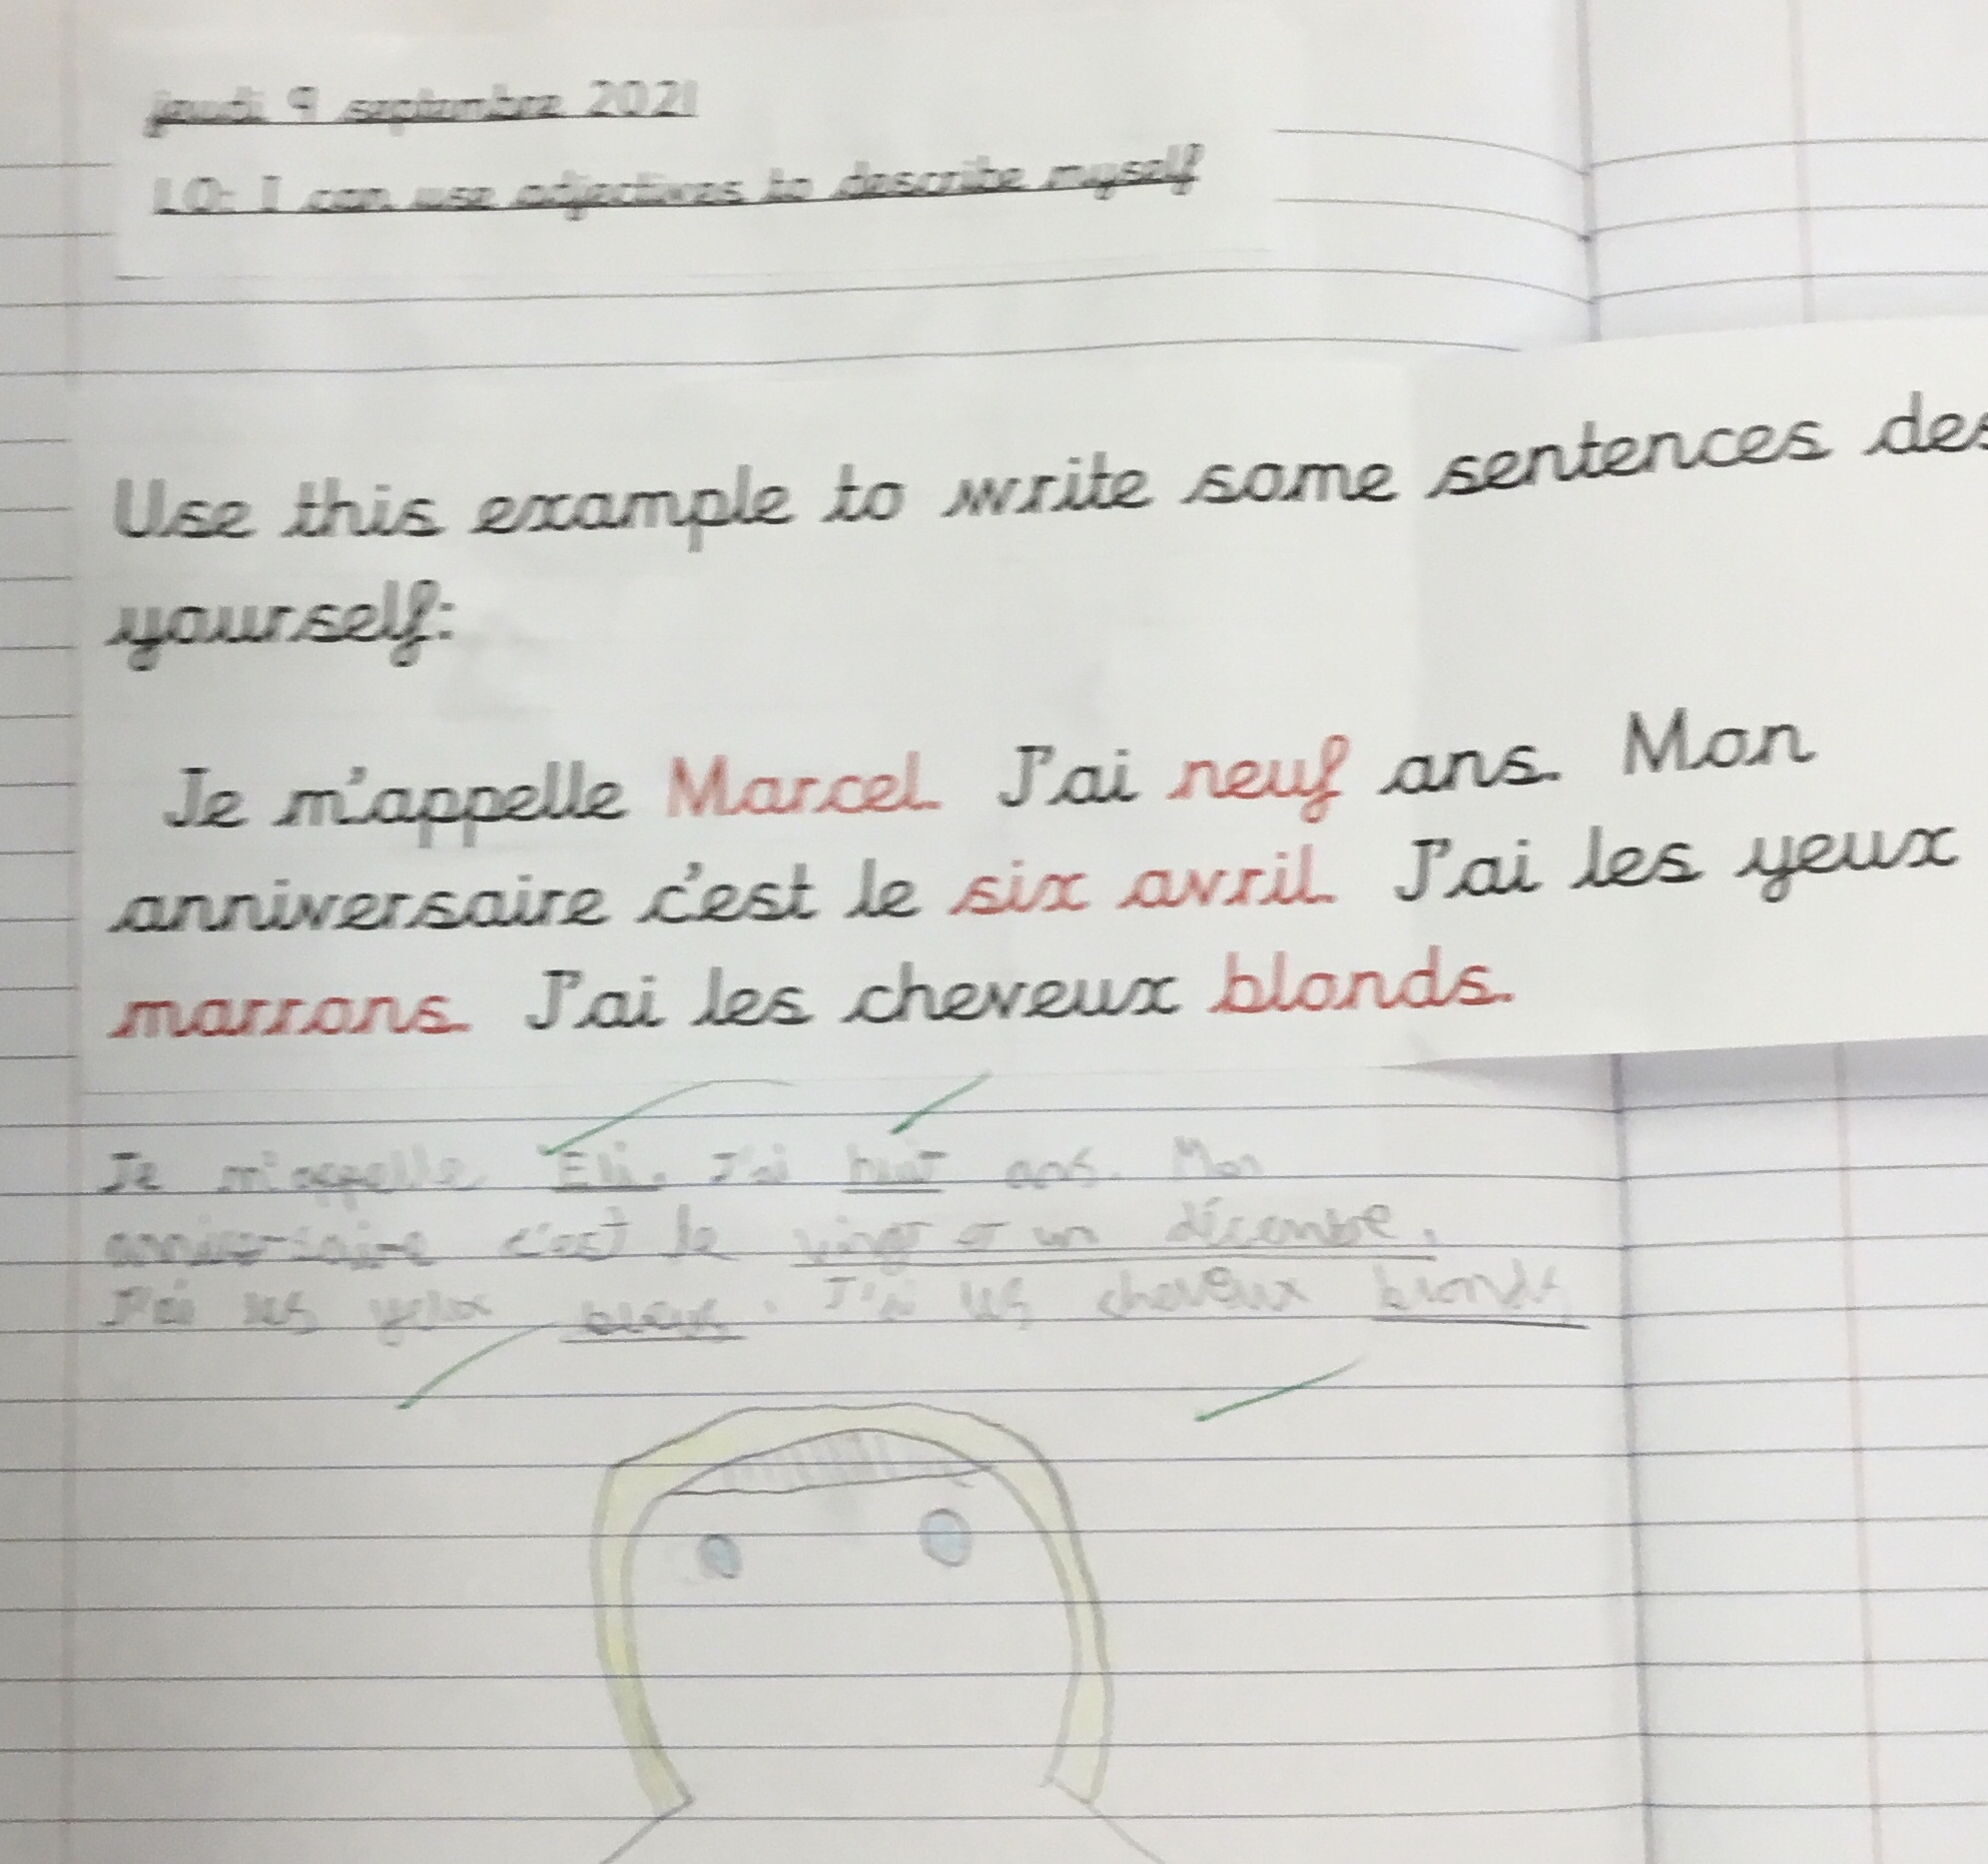 jeudi 9 septembre 2021
LO: I can use adjectives to describe myself
Use this example to write some sentences des
yourself:
Je m'appelle Marcel. J'ai neuf ans. Mon
anniversaire c'est le six avril. J'ai les yeux
marrons. J'ai les cheveux blonds.
Je m'appelle Eli. J'ai huit ans. Mon
anniversaire c'est le vingt et un décembre.
J'ai les yeux bleus. J'ai les cheveux blonds